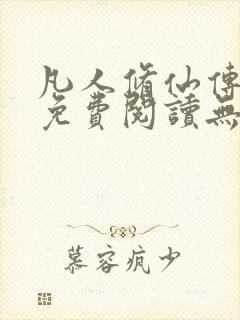 凡人脩仙傳
免費閱讀無
慕容疯少